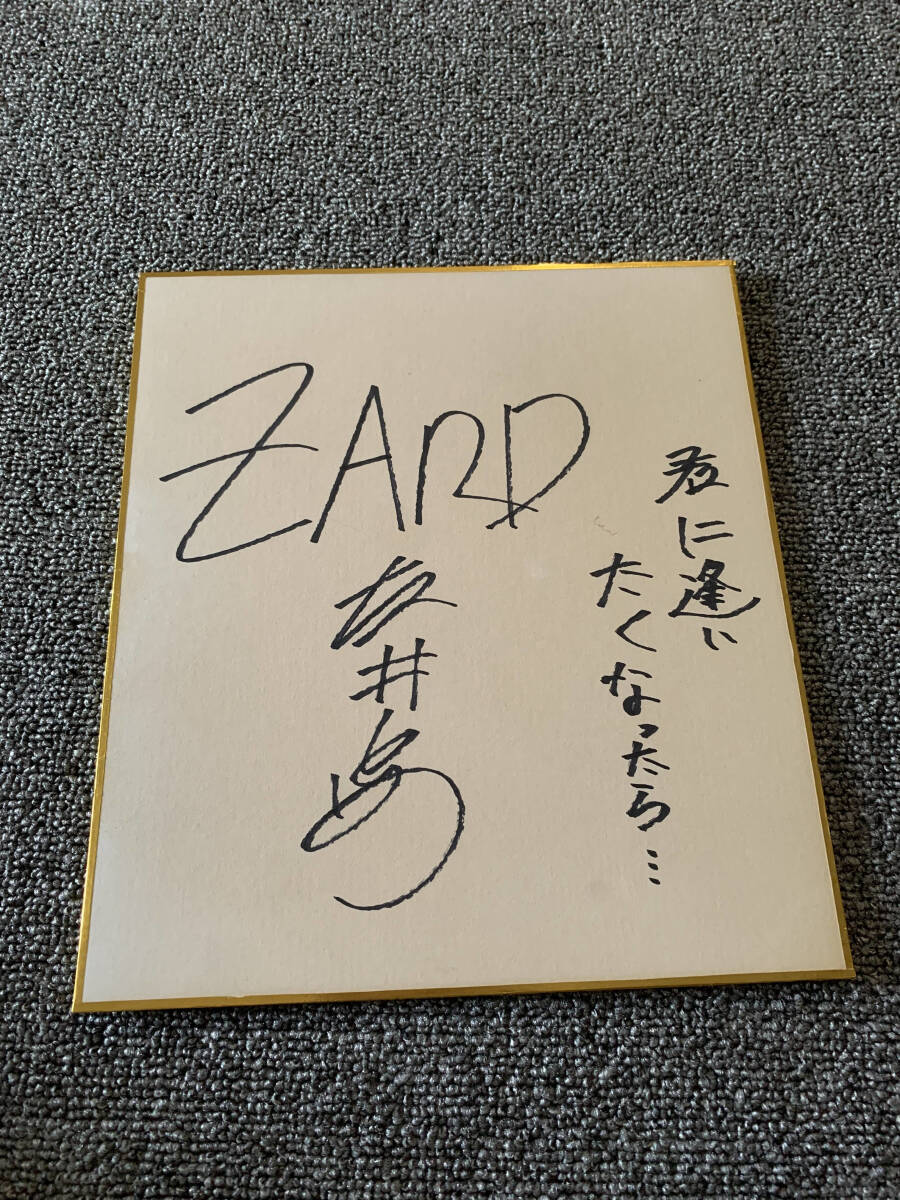 ZARD
坂井泉
君に逢い
たくなったら…